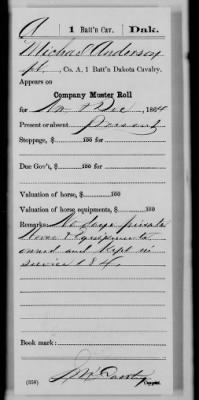 A 1 Batt'n Cav. Dak.
Michael Anderson
pt, Co. A, 1 Batt'n Dakota Cavalry.
Appears on
Company Muster Roll
for Nov & Dec, 1864
Present or absent Present
Stoppage, $ 100 for
Due Gov't, $ 100 for
Valuation of horse, $ 100
Valuation of horse equipments, $ 100
Remarks: No. days private
Horse & Equipments
owned and kept in
service
Book mark:
(358) Copyist.